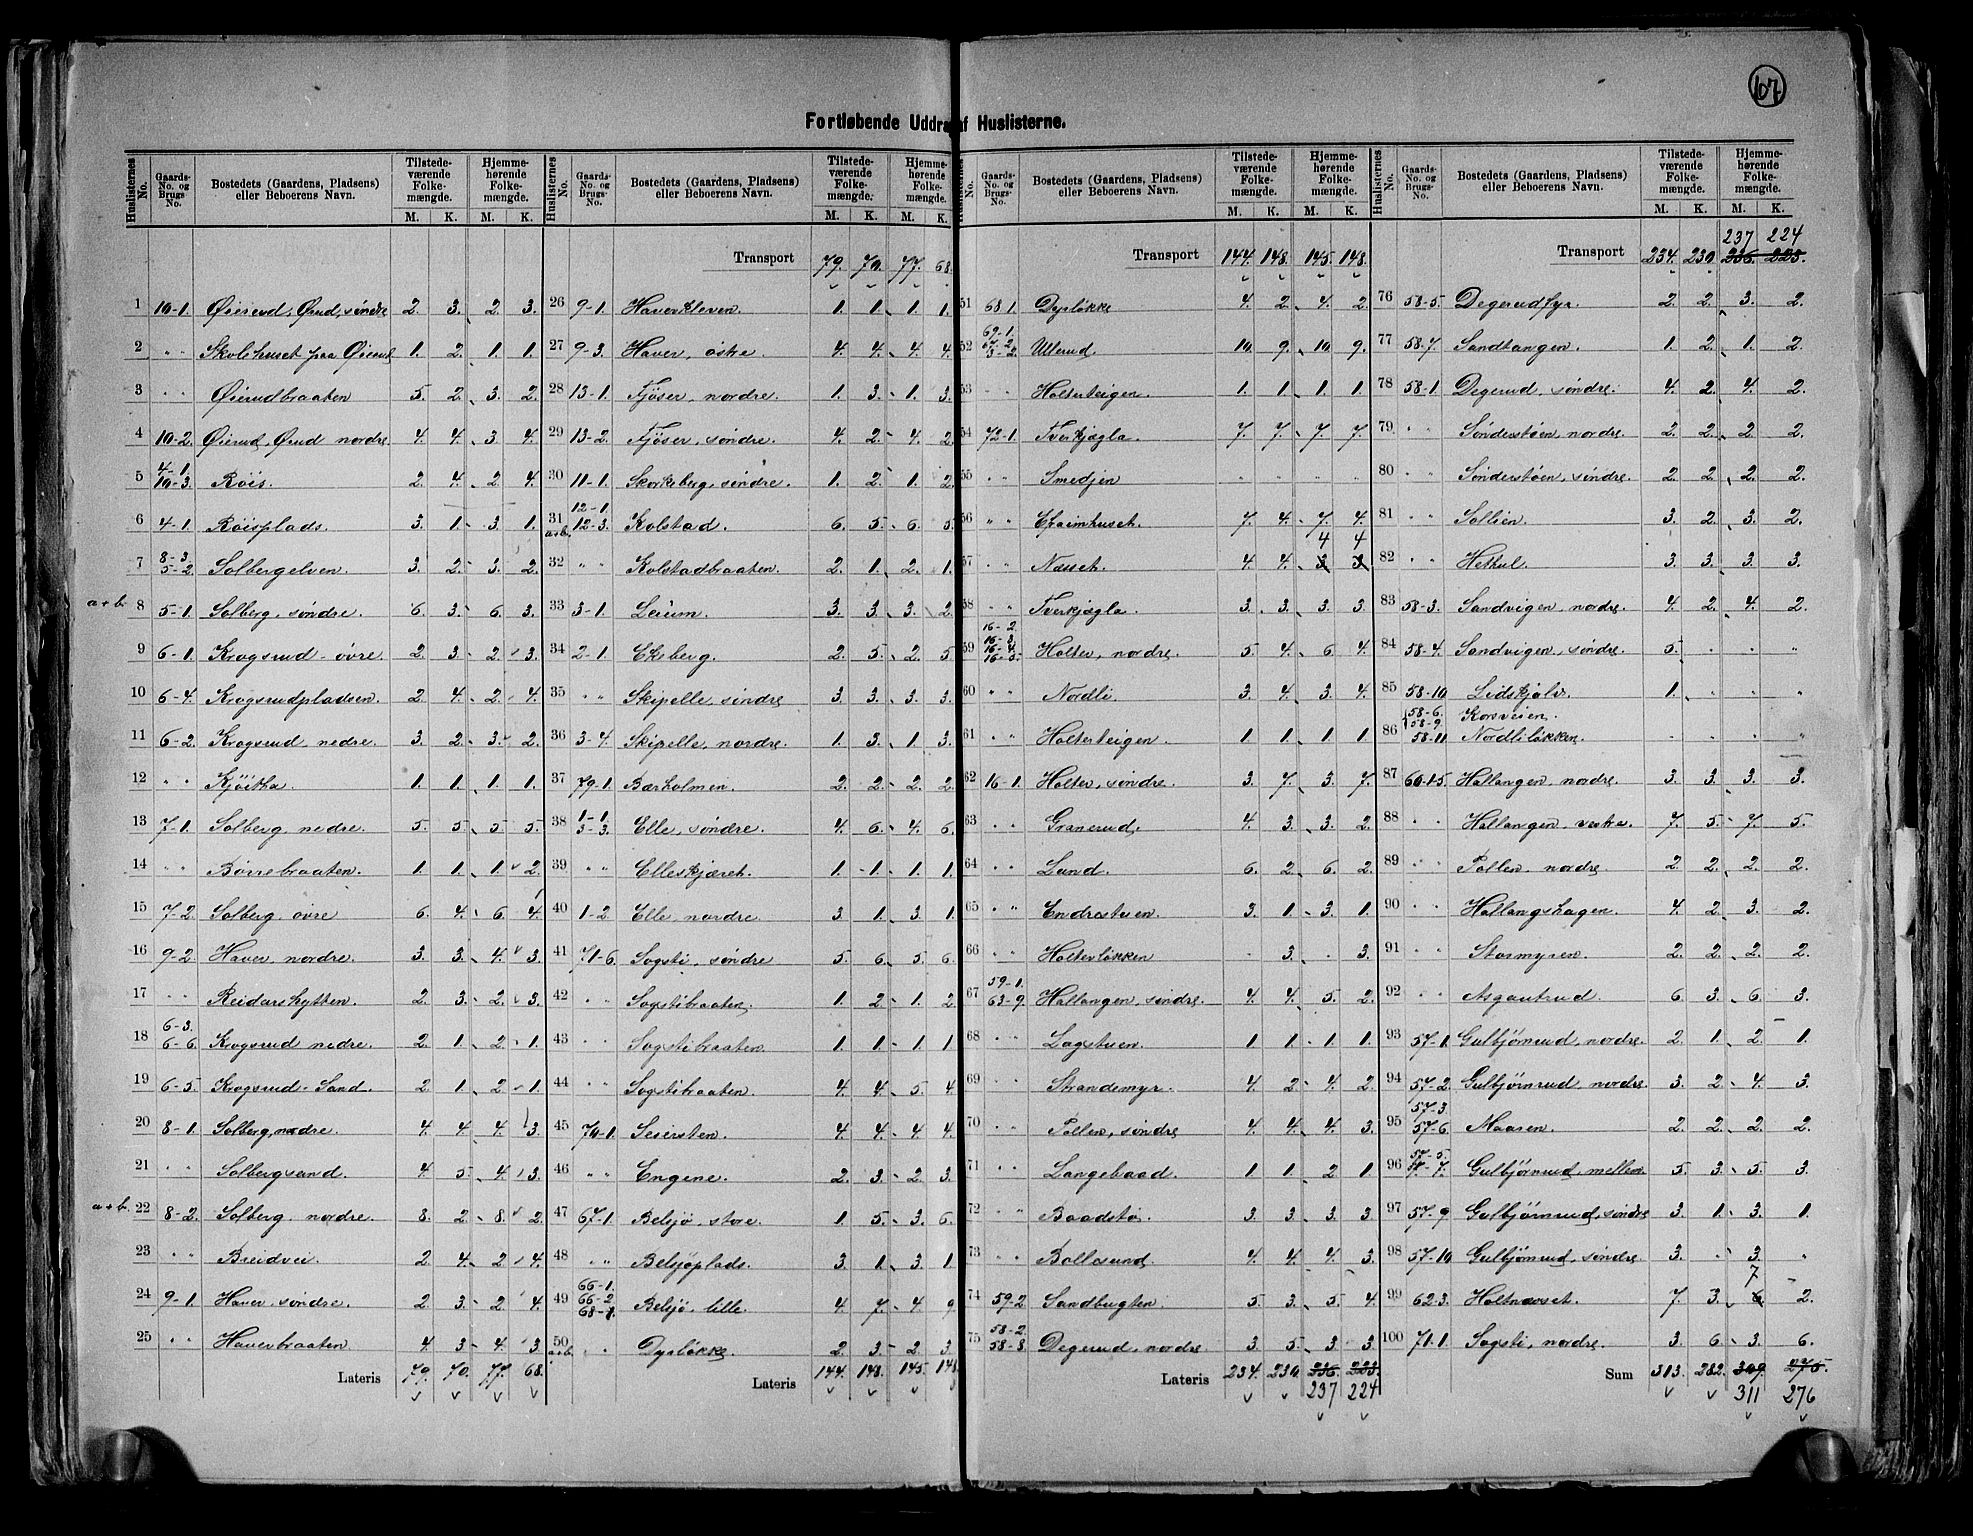 107
Fortløbende Uddrag af Huslisterne.
Huslisternes No. | Gaards-No. og Brugs-No. | Bostedets (Gaardens, Pladsens) eller Beboerens Navn. | Tilstedeværende Folkemængde. M. K. | Hjemmehørende Folkemængde. M. K.
1 10-1. Øierud, Ørud, søndre 2. 3. 2. 3.
2 " " Skolehuset paa Øierud 1. 2. 1. 1.
3 " " Øierudbraaten 5. 2. 3. 2.
4 10-2. Øierud, Ørud nordre 4. 4. 3. 4.
5 4-1. 10-3. Røis. 2. 4. 2. 4.
6 4-1. Røisplads. 3. 1. 3. 1.
7 8-3. 5-2. Solbergelven. 3. 2. 3. 2.
a+b. 8 5-1. Solberg, søndre. 6. 3. 6. 3.
9 6-1. Krogsrud-øvre. 2. 3. 2. 3.
10 6-4. Krogsrudpladsen 2. 4. 2. 4.
11 6-2. Krogsrud, nedre. 3. 2. 3. 2.
12 " " Kjøitha 1. 1. 1. 1.
13 7-1. Solberg, nedre. 5. 5. 5. 5.
14 " " Børrebraaten. 1. 1. 1. 2.
15 7-2. Solberg, øvre 6. 4. 6. 4.
16 9-2. Haver, nordre. 3. 3. 4. 3.
17 " " Reidarshytten. 2. 3. 2. 3.
18 6-3. 6-6. Krogsrud nedre. 2. 1. 2. 1.
19 6-5. Krogsrud-Sand. 2. 1. 2. 1.
20 8-1. Solberg, nedre. 4. 4. 4. 3.
21 " " Solbergsand. 4. 5. 4. 3.
a+b. 22 8-2. Solberg, nordre. 8. 2. 8. 2.
23 " " Breidvei 2. 4. 2. 4.
24 9-1. Haver, søndre. 2. 3. 2. 4.
25 " " Haverbraaten. 4. 3. 4. 3.
Lateris 79. 70. 77. 68.
Huslisternes No. | Gaards-No. og Brugs-No. | Bostedets (Gaardens, Pladsens) eller Beboerens Navn. | Tilstedeværende Folkemængde. M. K. | Hjemmehørende Folkemængde. M. K.
Transport 79. 70. 77. 68.
26 9-1. Haverkleven. 1. 1. 1. 1.
27 9-3. Haver, østre. 4. 4. 4. 4.
28 13-1. Fjøser, nordre. 1. 3. 1. 3.
29 13-2. Fjøser, søndre. 4. 2. 4. 2.
30 11-1. Skorkeberg, søndre. 1. 2. 1. 2.
31 a+b. 12-1. 12-3. Kolstad. 6. 5. 6. 5.
32 " " Kolstadbraaten. 2. 1. 2. 1.
33 3-1. Leium. 3. 3. 3. 2.
34 2-1. Ekeberg. 2. 5. 2. 5.
35 " " Skipelle, søndre 3. 3. 3. 3.
36 3-4. Skipelle, nordre. 1. 3. 1. 3.
37 79-1. Bærholmen. 2. 2. 2. 2.
38 1-1. 3-3. Elle, søndre. 4. 6. 4. 6.
39 " " Elleskjæret. 1. 1. 1. 1.
40 1-2. Elle, nordre 3. 1. 3. 1.
41 71-6. Sogsti, søndre 5. 6. 5. 6.
42 " " Sogstibraaten. 1. 2. 1. 2.
43 " " Sogstibraaten. 1. 1. 1. 1.
44 " " Sogstibraaten. 4. 4. 5. 4.
45 70-1. Seiersten. 4. 4. 4. 4.
46 " " Engene. 2. 3. 2. 3.
47 67-1. Belsjø, store. 1. 5. 3. 6.
48 " " Belsjøplads. 3. 1. 3. 1.
49 66-1. 66-2. 68-8. Belsjø, lille. 4. 7. 4. 9.
50 a+b. " " Dysløkke. 2. 3. 2. 3.
Lateris 144. 148. 145. 148.
Huslisternes No. | Gaards-No. og Brugs-No. | Bostedets (Gaardens, Pladsens) eller Beboerens Navn. | Tilstedeværende Folkemængde. M. K. | Hjemmehørende Folkemængde. M. K.
Transport 144. 148. 145. 148.
51 68-1. Dysløkke 4. 2. 4. 2.
52 69-1. 67-2. 3-2. Ullerud. 10. 9. 10. 9.
53 " " Holterteigen. 1. 1. 1. 1.
54 72-1. Tverkjægla. 7. 7. 7. 7.
55 " " Smedjen " " " "
56 " " Graimhuset. 7. 4. 7. 4.
57 " " Næsset. 4. 4. 3 4 3 4
58 " " Tverkjægla 3. 3. 3. 3.
59 16-2. 16-3. 16-4. 16-5. Holter, nordre. 5. 4. 6. 4.
60 " " Nordli. 3. 4. 3. 4.
61 " " Holterteigen. 1. 1. 1. 1.
62 16-1. Holter, søndre. 3. 7. 3. 7.
63 " " Granerud. 4. 3. 3. 2.
64 " " Lund. 6. 2. 6. 2.
65 " " Endrestuen. 3. 1. 3. 1.
66 " " Holterløkken " 3. " 3.
67 59-1. 63-9. Hallangen, søndre. 4. 4. 5. 2.
68 " " Lagstuen 1. 1. 1. 1.
69 " " Strandemyr. 4. 2. 4. 2.
70 " " Pollen, søndre 4. 4. 4. 3.
71 " " Langebaad. 1. 1. 2. 1.
72 " " Baadstø. 3. 3. 3. 3.
73 " " Ballesund. 4. 4. 4. 3.
74 59-2. Sandbugten. 5. 3. 5. 4.
75 58-2. 58-8. Degerud, nordre. 3. 5. 3. 3.
Lateris 234. 230. 236. 223.
237 224
Huslisternes No. | Gaards-No. og Brugs-No. | Bostedets (Gaardens, Pladsens) eller Beboerens Navn. | Tilstedeværende Folkemængde. M. K. | Hjemmehørende Folkemængde. M. K.
237 224
Transport 234. 230. 236. 223.
76 58-5. Degerudfyr. 2. 2. 3. 2.
77 58-7. Sandtangen. 1. 2. 1. 2.
78 58-1. Degerud, søndre. 4. 2. 4. 2.
79 " " Sønderstøen, nordre. 2. 2. 2 2.
80 " " Sønderstøen, søndre. 2. 2. 2. 2.
81 " " Sollien. 3. 2. 3. 2.
82 " " Hethul. 3. 3. 3. 3.
83 58-3. Sandvigen, nordre. 4. 2. 4. 2.
84 58-4. Sandvigen, søndre. 5. " " "
85 58-10 Lidskjalv. 1. " " "
58-6. 58-9. Korsveien.
86 58-11 Nordliløkken. " " " "
87 60-1-5. Hallangen, nordre. 3. 3. 3. 3.
88 " " Hallangen, vestre. 7. 5. 7. 5.
89 " " Pollen, nordre 2. 2. 2. 2.
90 " " Hallangshagen. 4. 2. 3. 2.
91 " " Stormyren. 2. 2. 2. 2.
92 " " Asgautrud. 6. 3. 6. 3.
93 57-1. Gulbjørnrud, nordre. 2. 1. 2. 1.
94 57-2. Gulbjørnrud, nordre. 3. 2. 4. 3.
95 57-3. 57-6. Maaren. 2. 2. 2. 2.
96 57-5. 57-7. Gulbjørnrud, mellem 5. 3. 5. 3.
97 57-9. Gulbjørnrud, søndre 3. 1. 3. 1.
98 57-10 Gulbjørnrud, søndre. 3. " 3. "
99 62-3. Holtnæsset. 7. 3. 6 7 2.
100 71-1. Sogsti, nordre. 3. 6. 3. 6.
Sum 313. 282. 309. 275.
311 276